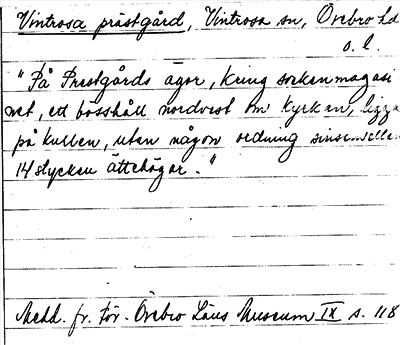 Vintrosa prästgård, Vintrosa sn, Örebro hd
o. l.
"På Prestgårds ägor, kring sockenmagasi
net, ett bösshåll nordvest om kyrkan, ligga
på kullen, utan någon ordning sinsemellan
14 stycken ättehögar."
Medd. fr. För. Örebro Läns Museum IX s. 118